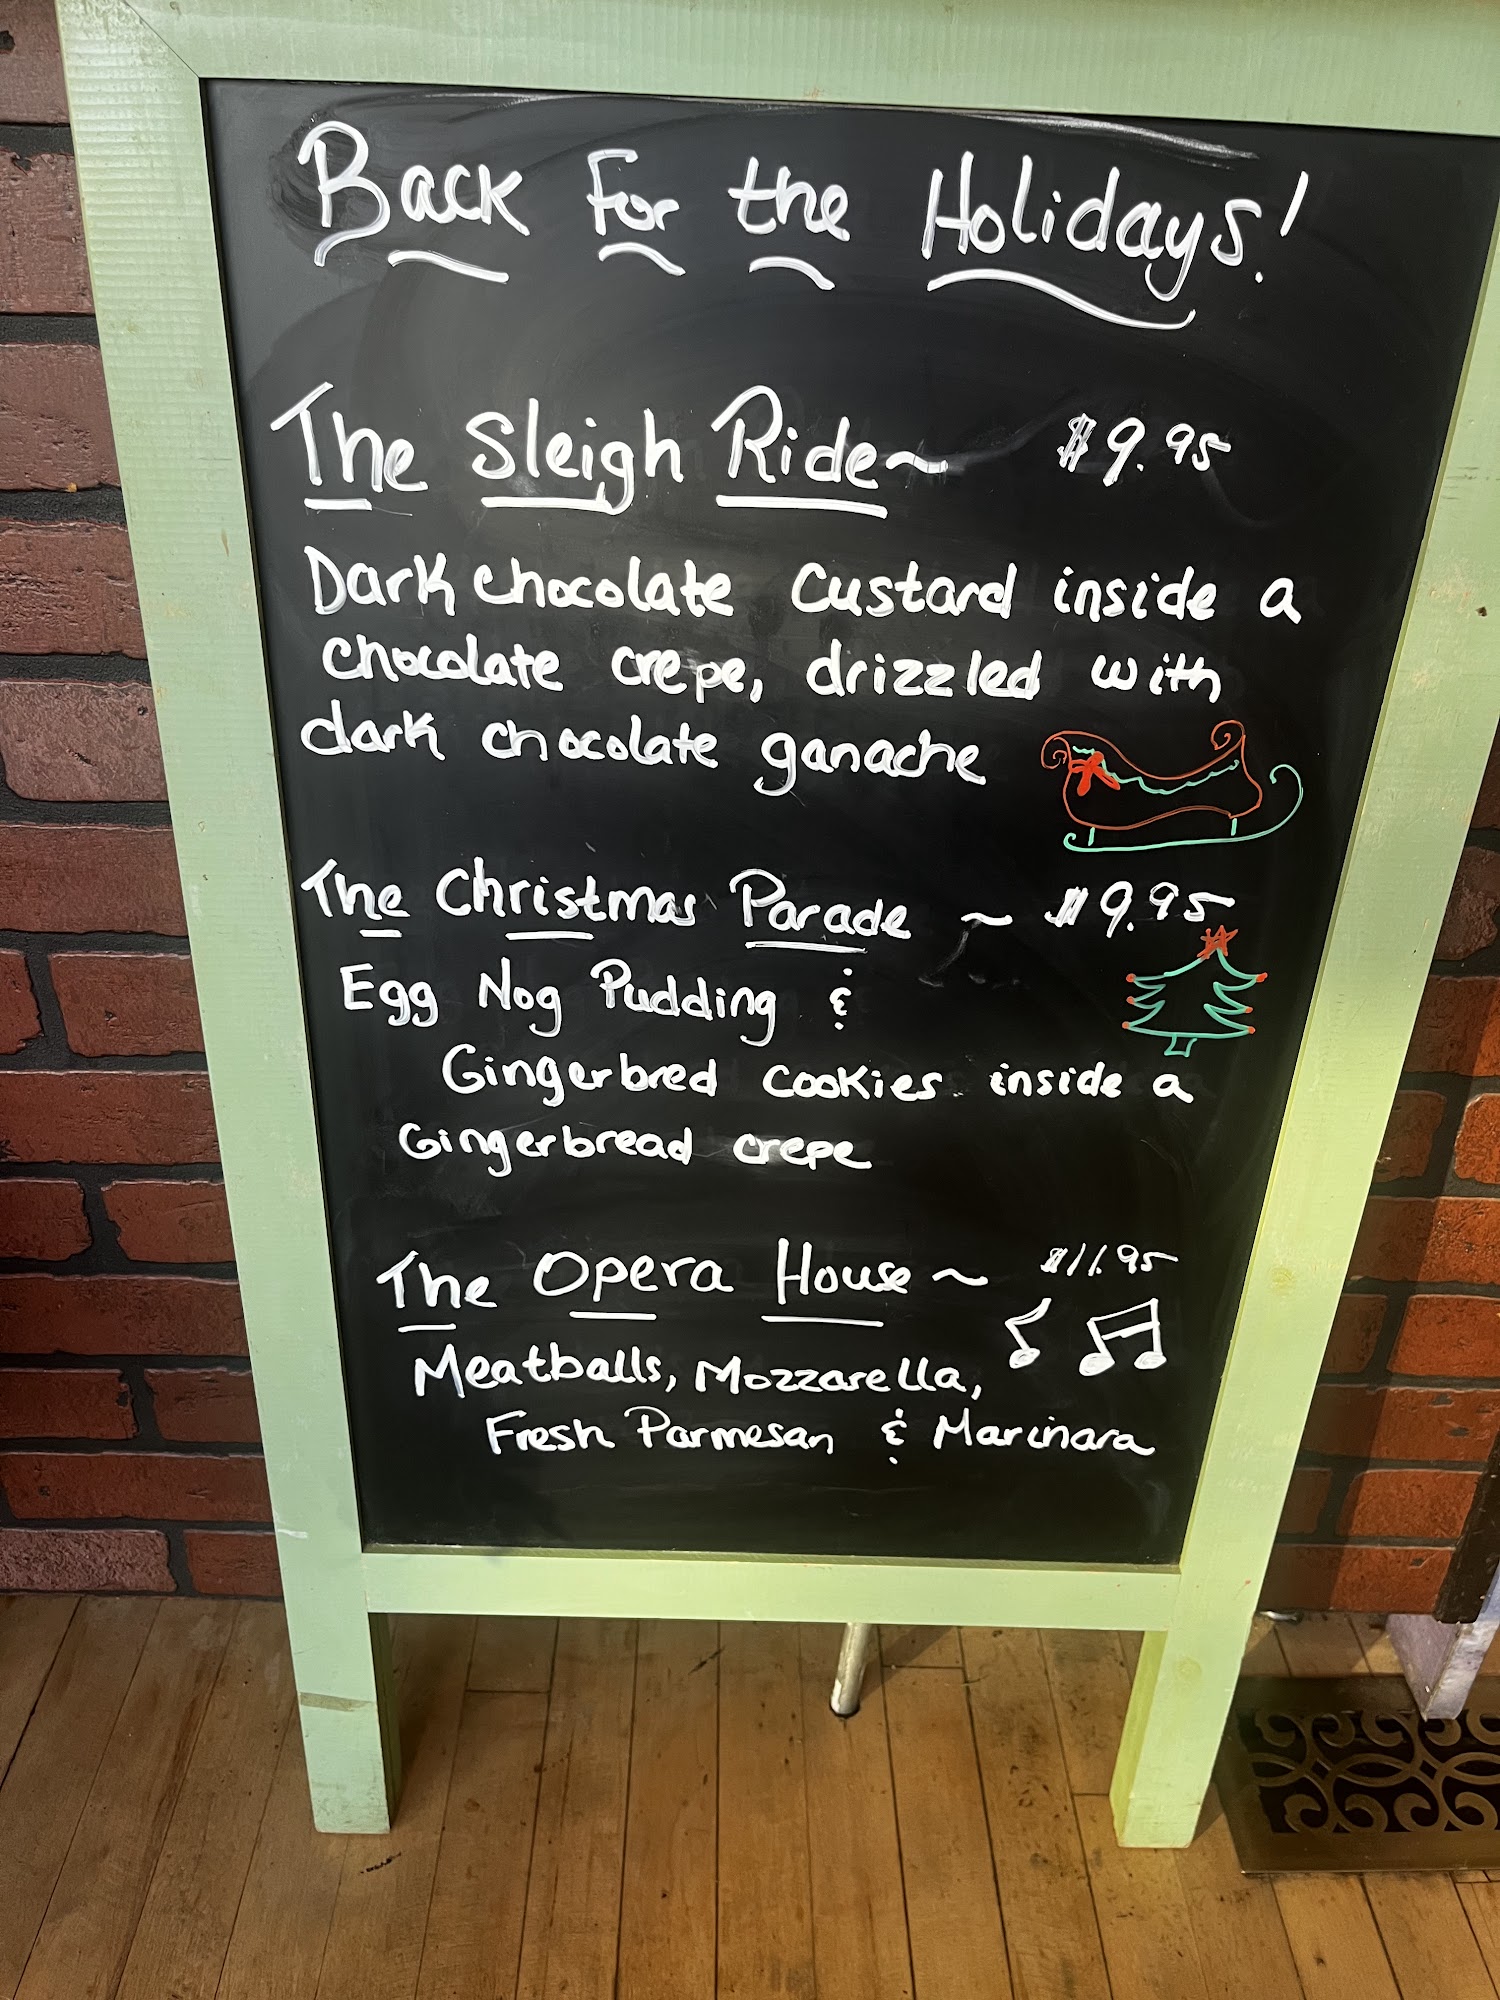 Back For the Holidays!
The Sleigh Ride~ $9.95
Dark chocolate custard inside a
chocolate crepe, drizzled with
dark chocolate ganache
The Christmas Parade ~ $9.95
Egg Nog Pudding &
Gingerbred cookies inside a
Gingerbread crepe
The Opera House ~ $11.95
Meatballs, Mozzarella,
Fresh Parmesan & Marinara